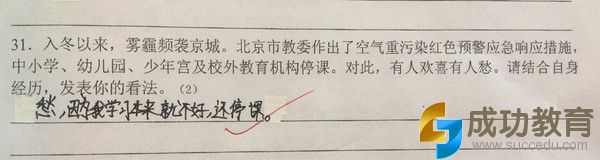 31. 入冬以来，雾霾频袭京城。北京市教委作出了空气重污染红色预警应急响应措施，
中小学、幼儿园、少年宫及校外教育机构停课。对此，有人欢喜有人愁。请结合自身
经历，发表你的看法。（2）
愁，因为我学习本来就不好，还停课。
成功教育
www.succedu.com